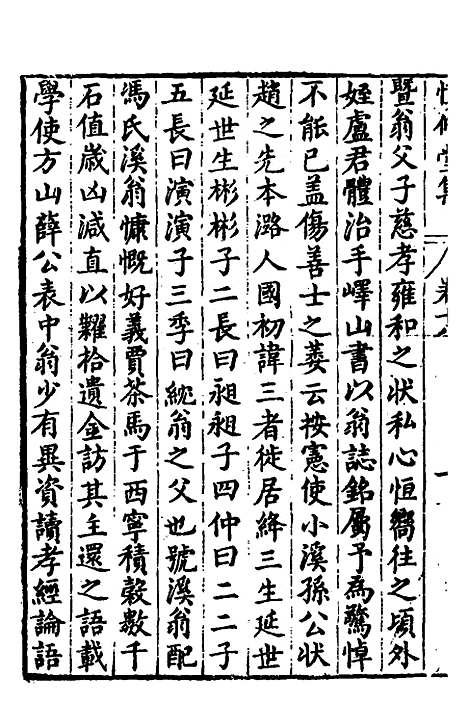 暨翁父子慈孝雍和之狀私心恒嚮往之頃外
姪盧君體治手嶧山書以翁誌銘屬予為驚悼
不能已盖傷善士之萎云按憲使小溪孫公狀
趙之先本潞人國初諱三者徙居絳三生延世
延世生彬彬子二長曰𧙗𧙗子四仲曰二二子
五長曰演演子三季曰統翁之父也號溪翁配
馮氏溪翁慷慨好義賈茶馬于西寧積穀數千
石值歲凶減直以糶拾遺金訪其主還之語載
學使方山薛公表中翁少有異資讀孝經論語